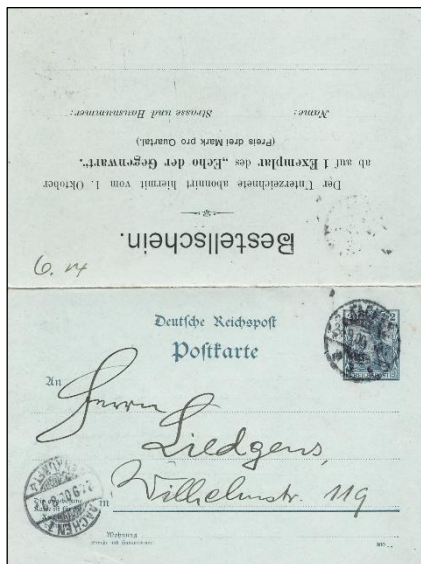 Bestellschein.
Der Unterzeichnete abonnirt hiermit vom 1. Oktober
ab auf 1 Exemplar des „Echo der Gegenwart“.
(Preis drei Mark pro Quartal.)
Name: Strasse und Hausnummer:
6. 14
Deutsche Reichspost
Postkarte
An
Herrn
Liedgens,
Wilhelmstr. 119
in
Wohnung
AACHEN
2